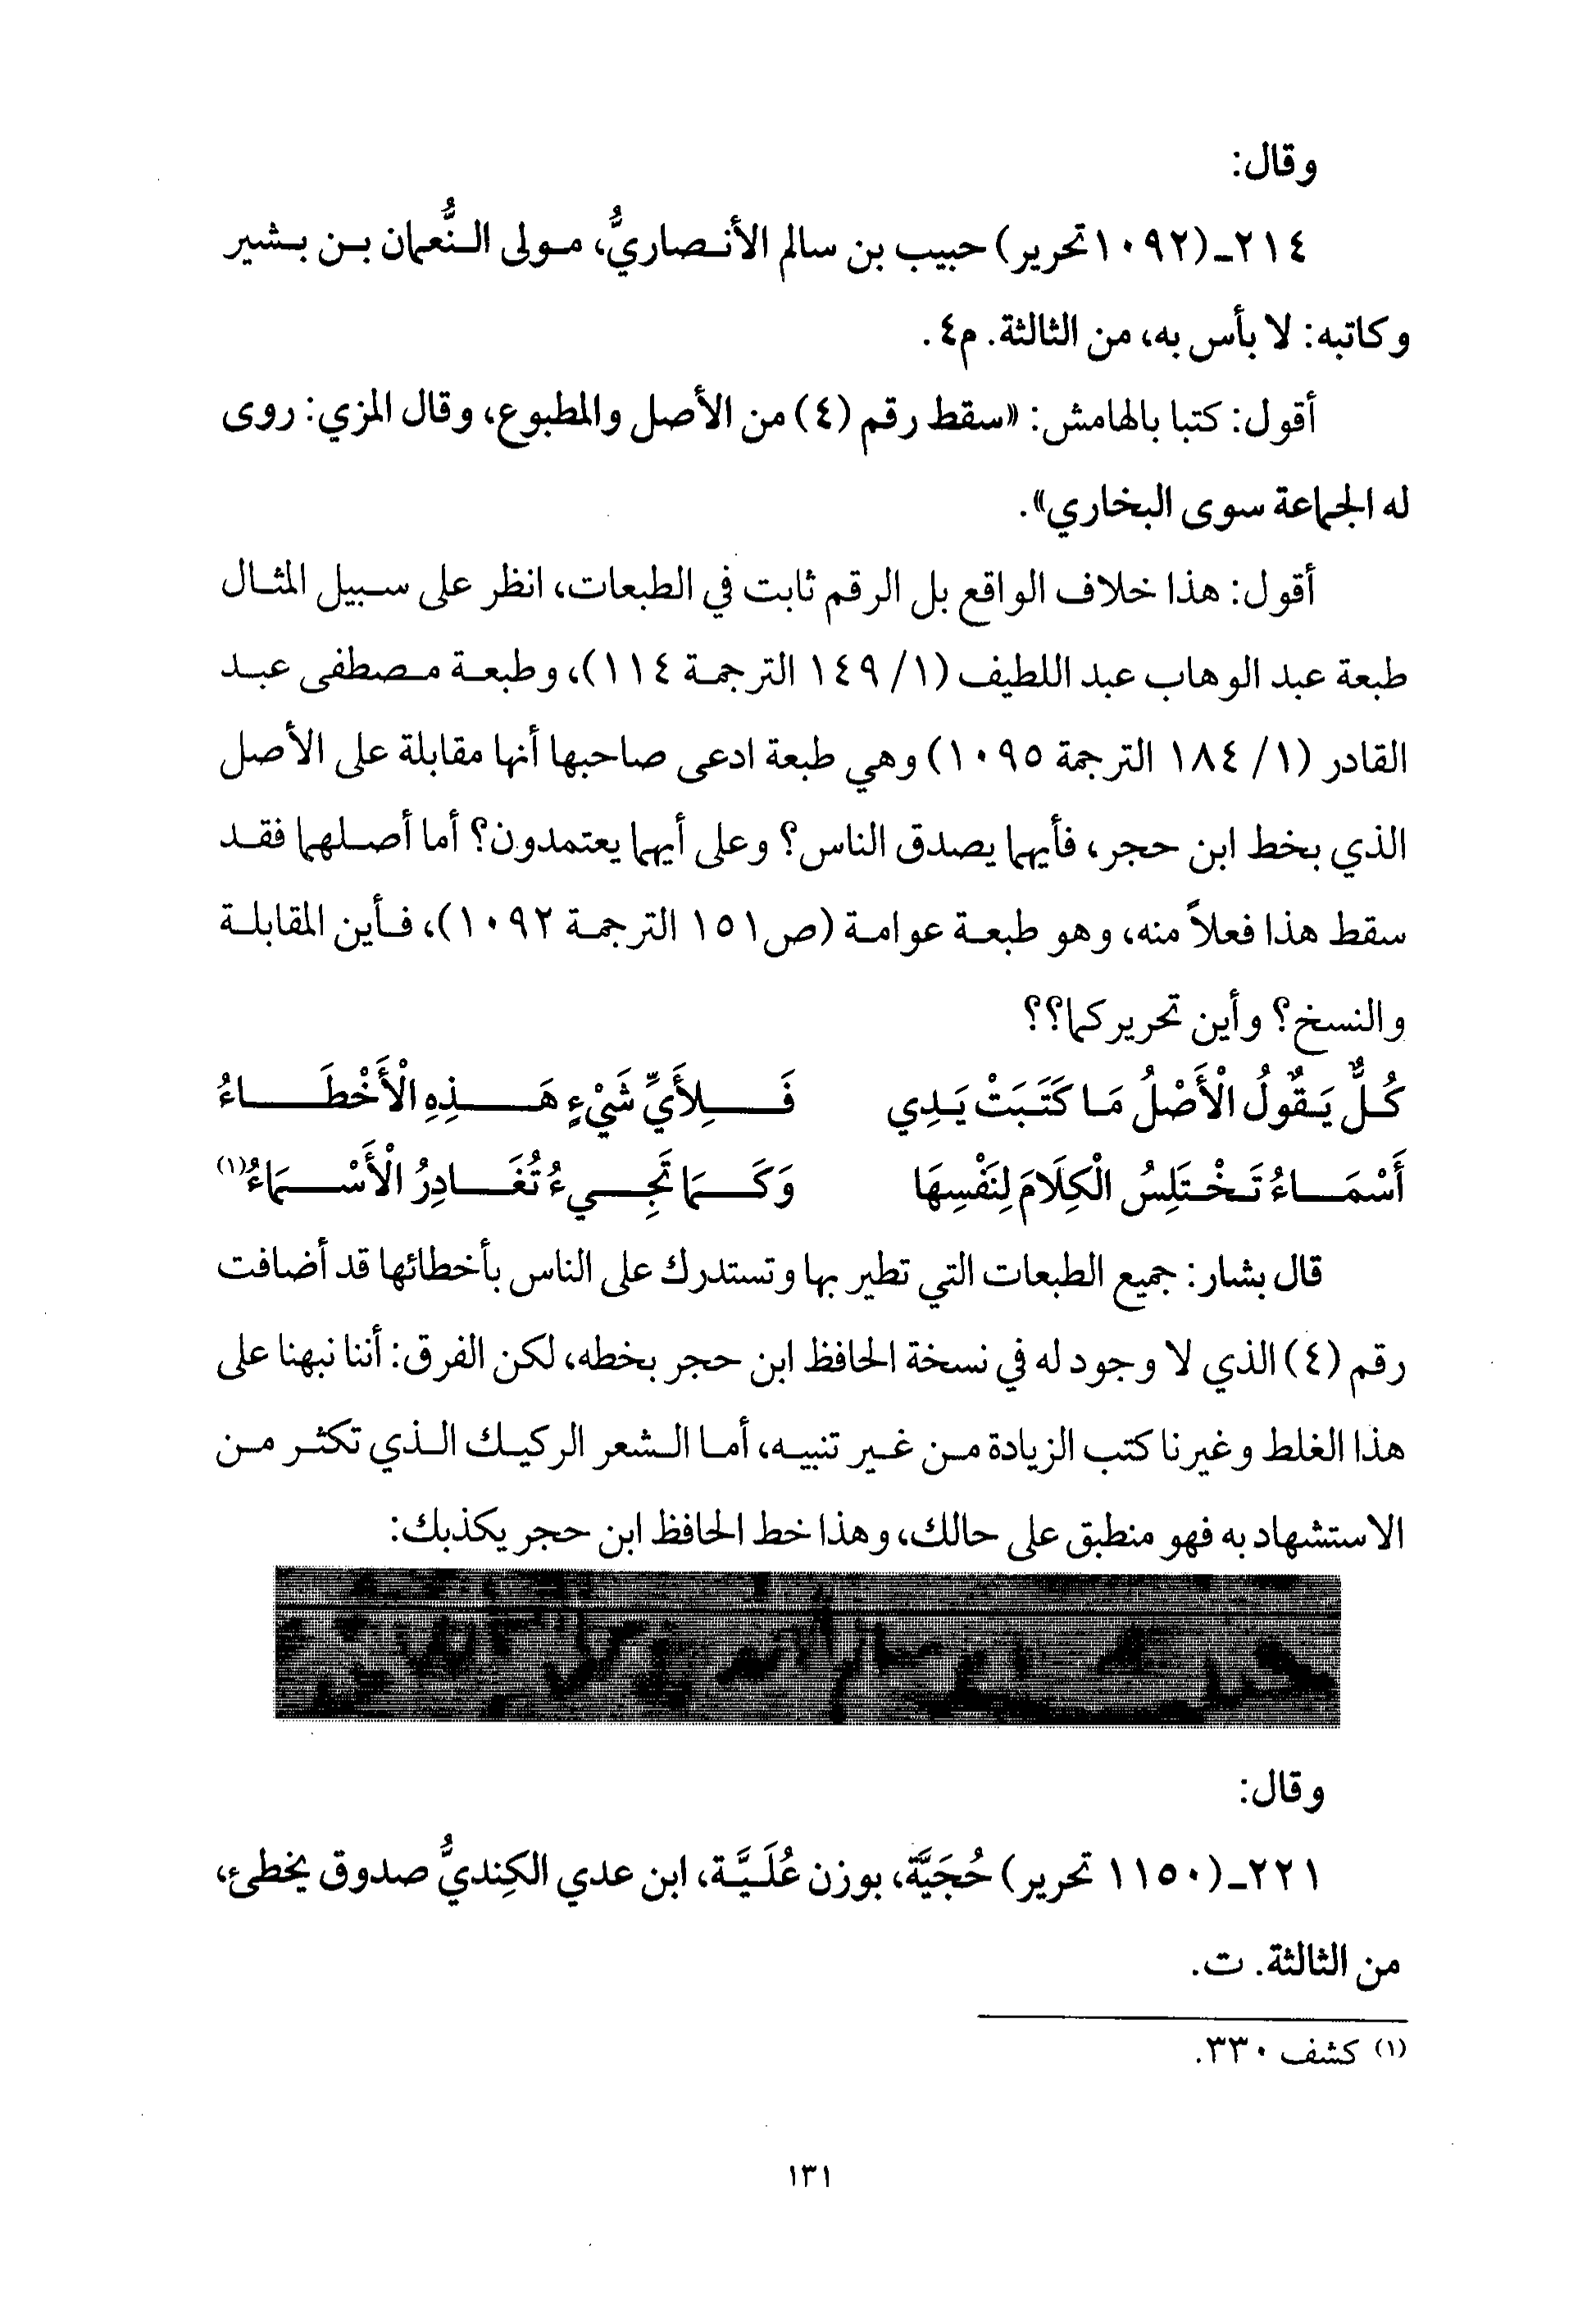 وقال:
٢١٤ـ(١٠٩٢تحرير) حبيب بن سالم الأنصاريُّ، مولى النُّعمان بن بشير
وكاتبه: لا بأس به، من الثالثة. م٤.
أقول: كتبا بالهامش: «سقط رقم (٤) من الأصل والمطبوع، وقال المزي: روى
له الجماعة سوى البخاري».
أقول: هذا خلاف الواقع بل الرقم ثابت في الطبعات، انظر على سبيل المثال
طبعة عبد الوهاب عبد اللطيف (١/ ١٤٩ الترجمة ١١٤)، وطبعة مصطفى عبد
القادر (١/ ١٨٤ الترجمة ١٠٩٥) وهي طبعة ادعى صاحبها أنها مقابلة على الأصل
الذي بخط ابن حجر، فأيهما يصدق الناس؟ وعلى أيهما يعتمدون؟ أما أصلهما فقد
سقط هذا فعلاً منه، وهو طبعة عوامة (ص١٥١ الترجمة ١٠٩٢)، فأين المقابلة
والنسخ؟ وأين تحريركما؟؟
كُلٌّ يَقُولُ الْأَصْلُ مَا كَتَبَتْ يَدِي فَلِأَيِّ شَيْءٍ هَذِهِ الْأَخْطَاءُ
أَسْمَاءُ تَخْتَلِسُ الْكِلَامَ لِنَفْسِهَا وَكَمَا تَجِيءُ تُغَادِرُ الْأَسْمَاءُ(١)
قال بشار: جميع الطبعات التي تطير بها وتستدرك على الناس بأخطائها قد أضافت
رقم (٤) الذي لا وجود له في نسخة الحافظ ابن حجر بخطه، لكن الفرق: أننا نبهنا على
هذا الغلط وغيرنا كتب الزيادة من غير تنبيه، أما الشعر الركيك الذي تكثر من
الاستشهاد به فهو منطبق على حالك، وهذا خط الحافظ ابن حجر يكذبك:
وقال:
٢٢١ـ(١١٥٠ تحرير) حُجَيَّة، بوزن عُلَيَّة، ابن عدي الكِنديُّ صدوق يخطئ،
من الثالثة. ت.
(١) كشف ٣٣٠.
١٣١